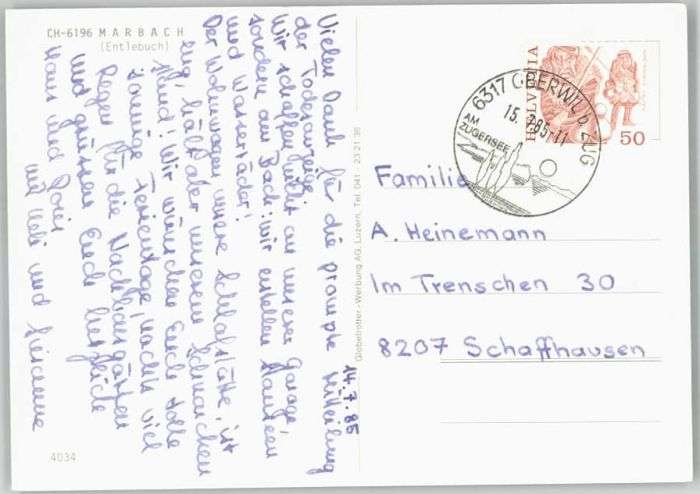 CH-6196 MARBACH
(Entlebuch)
14.7.85
Vielen Dank für die prompte Mitteilung
der Todesanzeige.
Wir schaffen nicht an unserer Garage,
sondern am Bach: wir erstellen Mauern
und Wasserräder!
Der Wohnwagen, unsere Schlafstätte, ist
eng, hält aber unserem Schnarchen
stand! Wir wünschen Euch tolle
sonnige Ferientage, nachts viel
Regen für die Nachbargärten
und grüssen Euch herzliche
Hans und Doris
mit Ueli und Susanne
4034
Globetrotter-Werbung AG, Luzern, Tel. 041 23 21 36
HELVETIA
50
6317 OBERWIL b. ZUG
15.7.85-11
AM
ZUGERSEE
Familie
A. Heinemann
Im Trenschen 30
8207 Schaffhausen